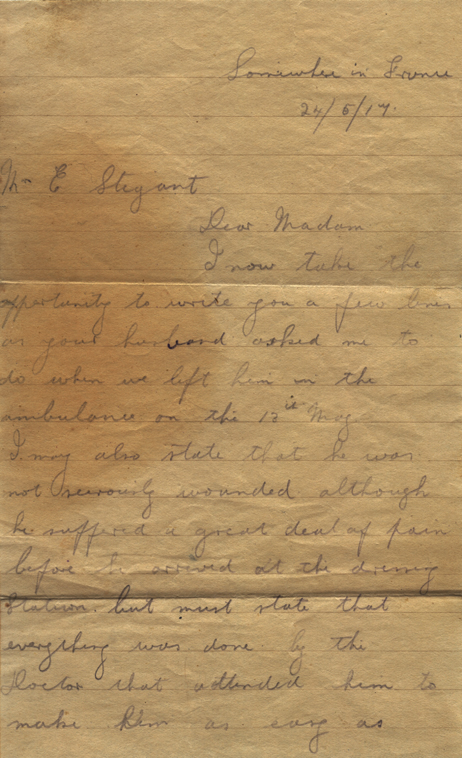 Somewhere in France
24/5/17.
Mrs E Stegant
Dear Madam
I now take the
opportunity to write you a few lines
as your husband asked me to
do when we left him in the
ambulance on the 12th May
I may also state that he was
not seriously wounded although
he suffered a great deal of pain
before he arrived at the dressing
Station. but must state that
everything was done by the
Doctor that attended him to
make him as easy as